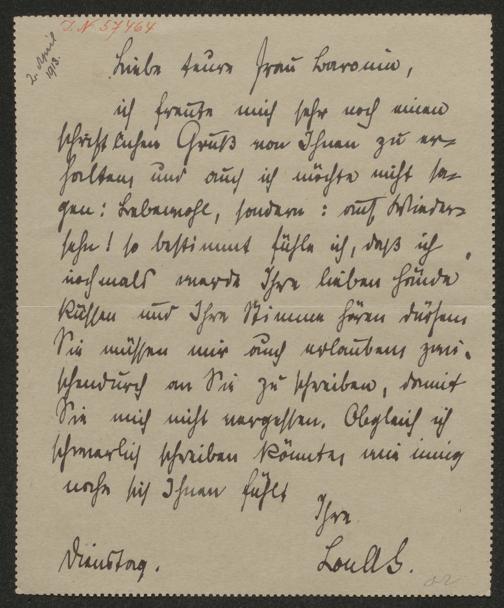 I.N 57464
2. April
1913.
Liebe teure Frau Baronin,
ich freute mich sehr noch einen
schriftlichen Gruß von Ihnen zu er=
halten, und auch ich möchte nicht sa=
gen: Lebewohl, sondern: auf Wieder=
sehn! so bestimmt fühle ich, daß ich
nochmals werde Ihre lieben Hände
küssen und Ihre Stimme hören dürfen.
Sie müssen mir auch erlauben, zwi=
schendurch an Sie zu schreiben, damit
Sie mich nicht vergessen. Obgleich ich
schwerlich schreiben könnte, wie innig
nahe sich Ihnen fühlt
Ihre
Dienstag. LouAS.